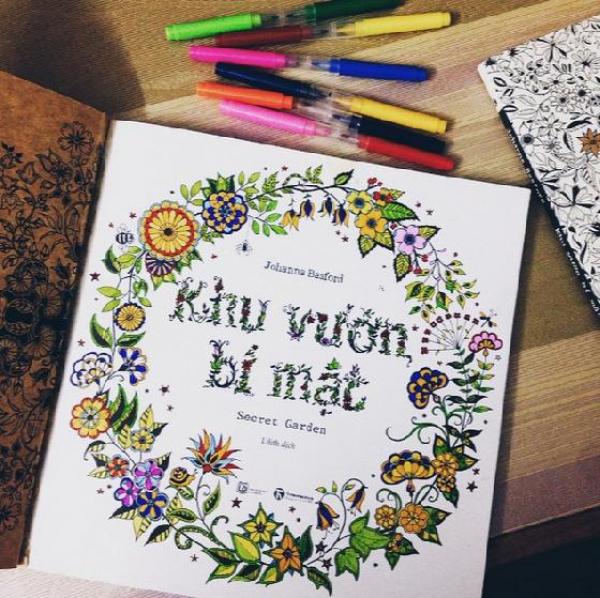 Johanna Basford
khu vườn
bí mật
Secret Garden